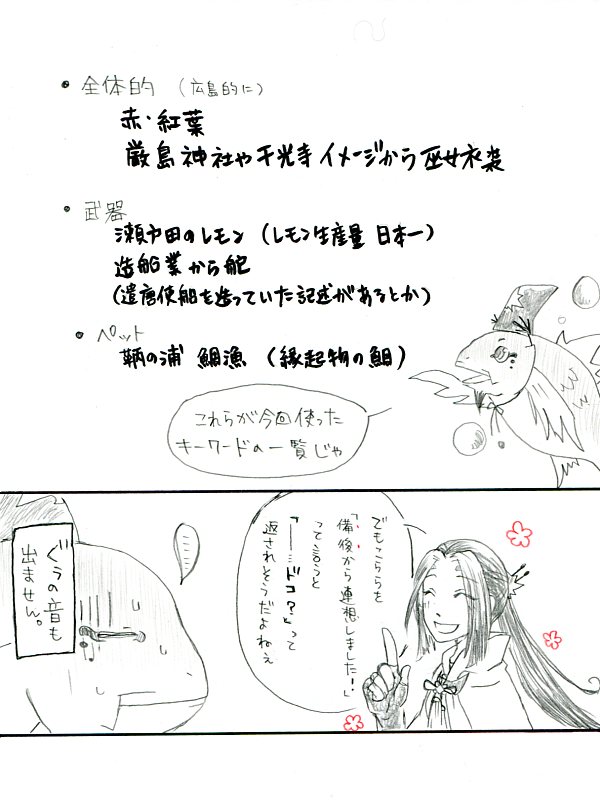 ・全体的（広島的に）
赤・紅葉
厳島神社や千光寺イメージから巫女衣装
・武器
瀬戸田のレモン（レモン生産量 日本一）
造船業から舵
（遣唐使船を造っていた記述があるとか）
・ペット
鞆の浦 鯛漁（縁起物の鯛）
これらが今回使った
キーワードの一覧じゃ
でもこちらを
「備後から連想しました！」
って言うと
「――…ドコ？」って
返されそうだよねぇ
ぐうの音も
出ません。